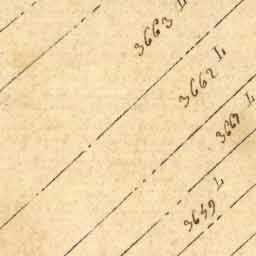 3663 L
3662 L
3661 L
3649 L